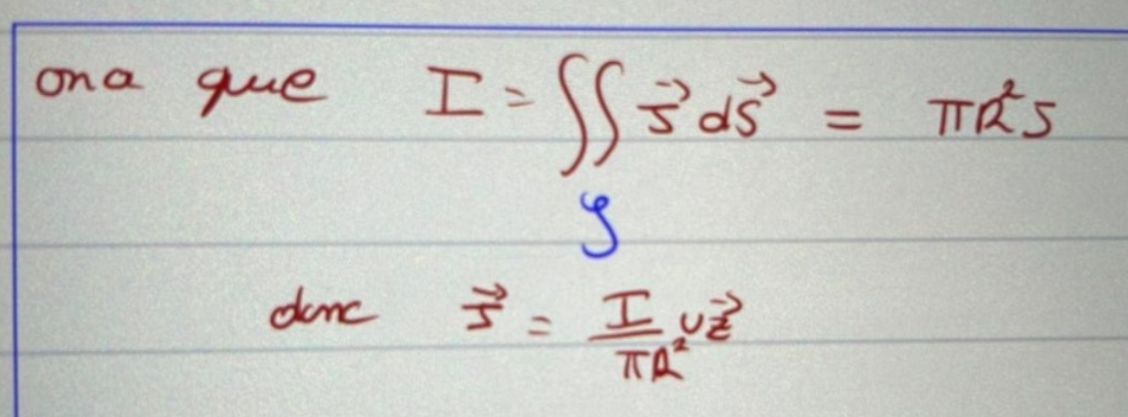 on a que I = ∬ J⃗ dS⃗ = πR²J
S
donc J⃗ = I/πR² uz⃗